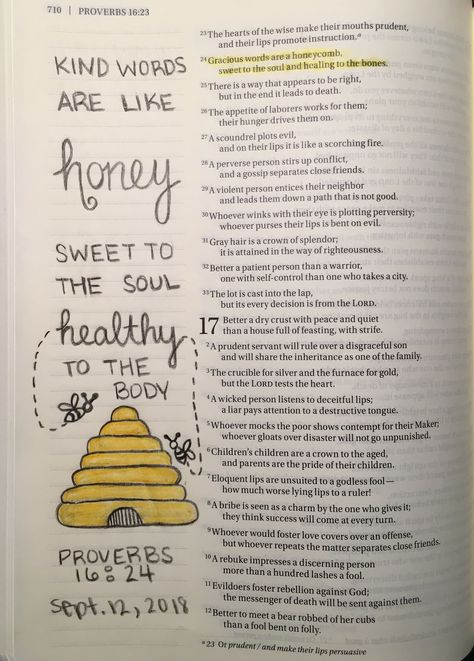 710 | PROVERBS 16:23
KIND WORDS
ARE LIKE
honey
SWEET TO
THE SOUL
healthy
TO THE
BODY
PROVERBS
16:24
Sept. 12, 2018
23 The hearts of the wise make their mouths prudent,
and their lips promote instruction.a
24 Gracious words are a honeycomb,
sweet to the soul and healing to the bones.
25 There is a way that appears to be right,
but in the end it leads to death.
26 The appetite of laborers works for them;
their hunger drives them on.
27 A scoundrel plots evil,
and on their lips it is like a scorching fire.
28 A perverse person stirs up conflict,
and a gossip separates close friends.
29 A violent person entices their neighbor
and leads them down a path that is not good.
30 Whoever winks with their eye is plotting perversity;
whoever purses their lips is bent on evil.
31 Gray hair is a crown of splendor;
it is attained in the way of righteousness.
32 Better a patient person than a warrior,
one with self-control than one who takes a city.
33 The lot is cast into the lap,
but its every decision is from the LORD.
17 Better a dry crust with peace and quiet
than a house full of feasting, with strife.
2 A prudent servant will rule over a disgraceful son
and will share the inheritance as one of the family.
3 The crucible for silver and the furnace for gold,
but the LORD tests the heart.
4 A wicked person listens to deceitful lips;
a liar pays attention to a destructive tongue.
5 Whoever mocks the poor shows contempt for their Maker;
whoever gloats over disaster will not go unpunished.
6 Children's children are a crown to the aged,
and parents are the pride of their children.
7 Eloquent lips are unsuited to a godless fool —
how much worse lying lips to a ruler!
8 A bribe is seen as a charm by the one who gives it;
they think success will come at every turn.
9 Whoever would foster love covers over an offense,
but whoever repeats the matter separates close friends.
10 A rebuke impresses a discerning person
more than a hundred lashes a fool.
11 Evildoers foster rebellion against God;
the messenger of death will be sent against them.
12 Better to meet a bear robbed of her cubs
than a fool bent on folly.
a 23 Or prudent / and make their lips persuasive